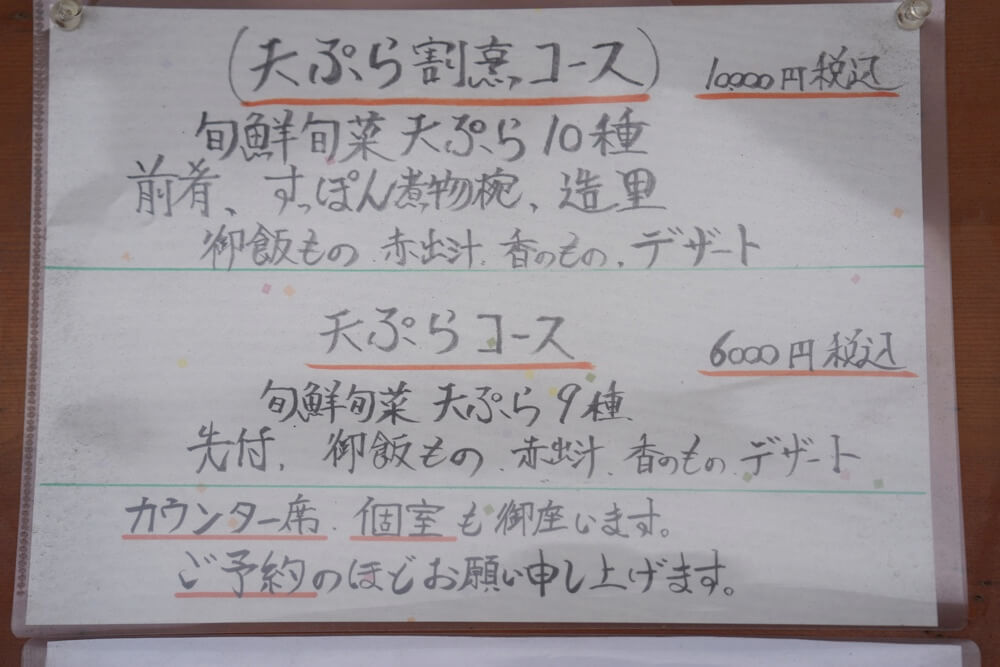 (天ぷら割烹コース) 10,000円税込
旬鮮旬菜天ぷら10種
前肴、すっぽん煮物椀、造里
御飯もの、赤出汁、香のもの、デザート
天ぷらコース 6000円税込
旬鮮旬菜 天ぷら9種
先付、御飯もの、赤出汁、香のもの、デザート
カウンター席、個室も御座います。
ご予約のほどお願い申し上げます。